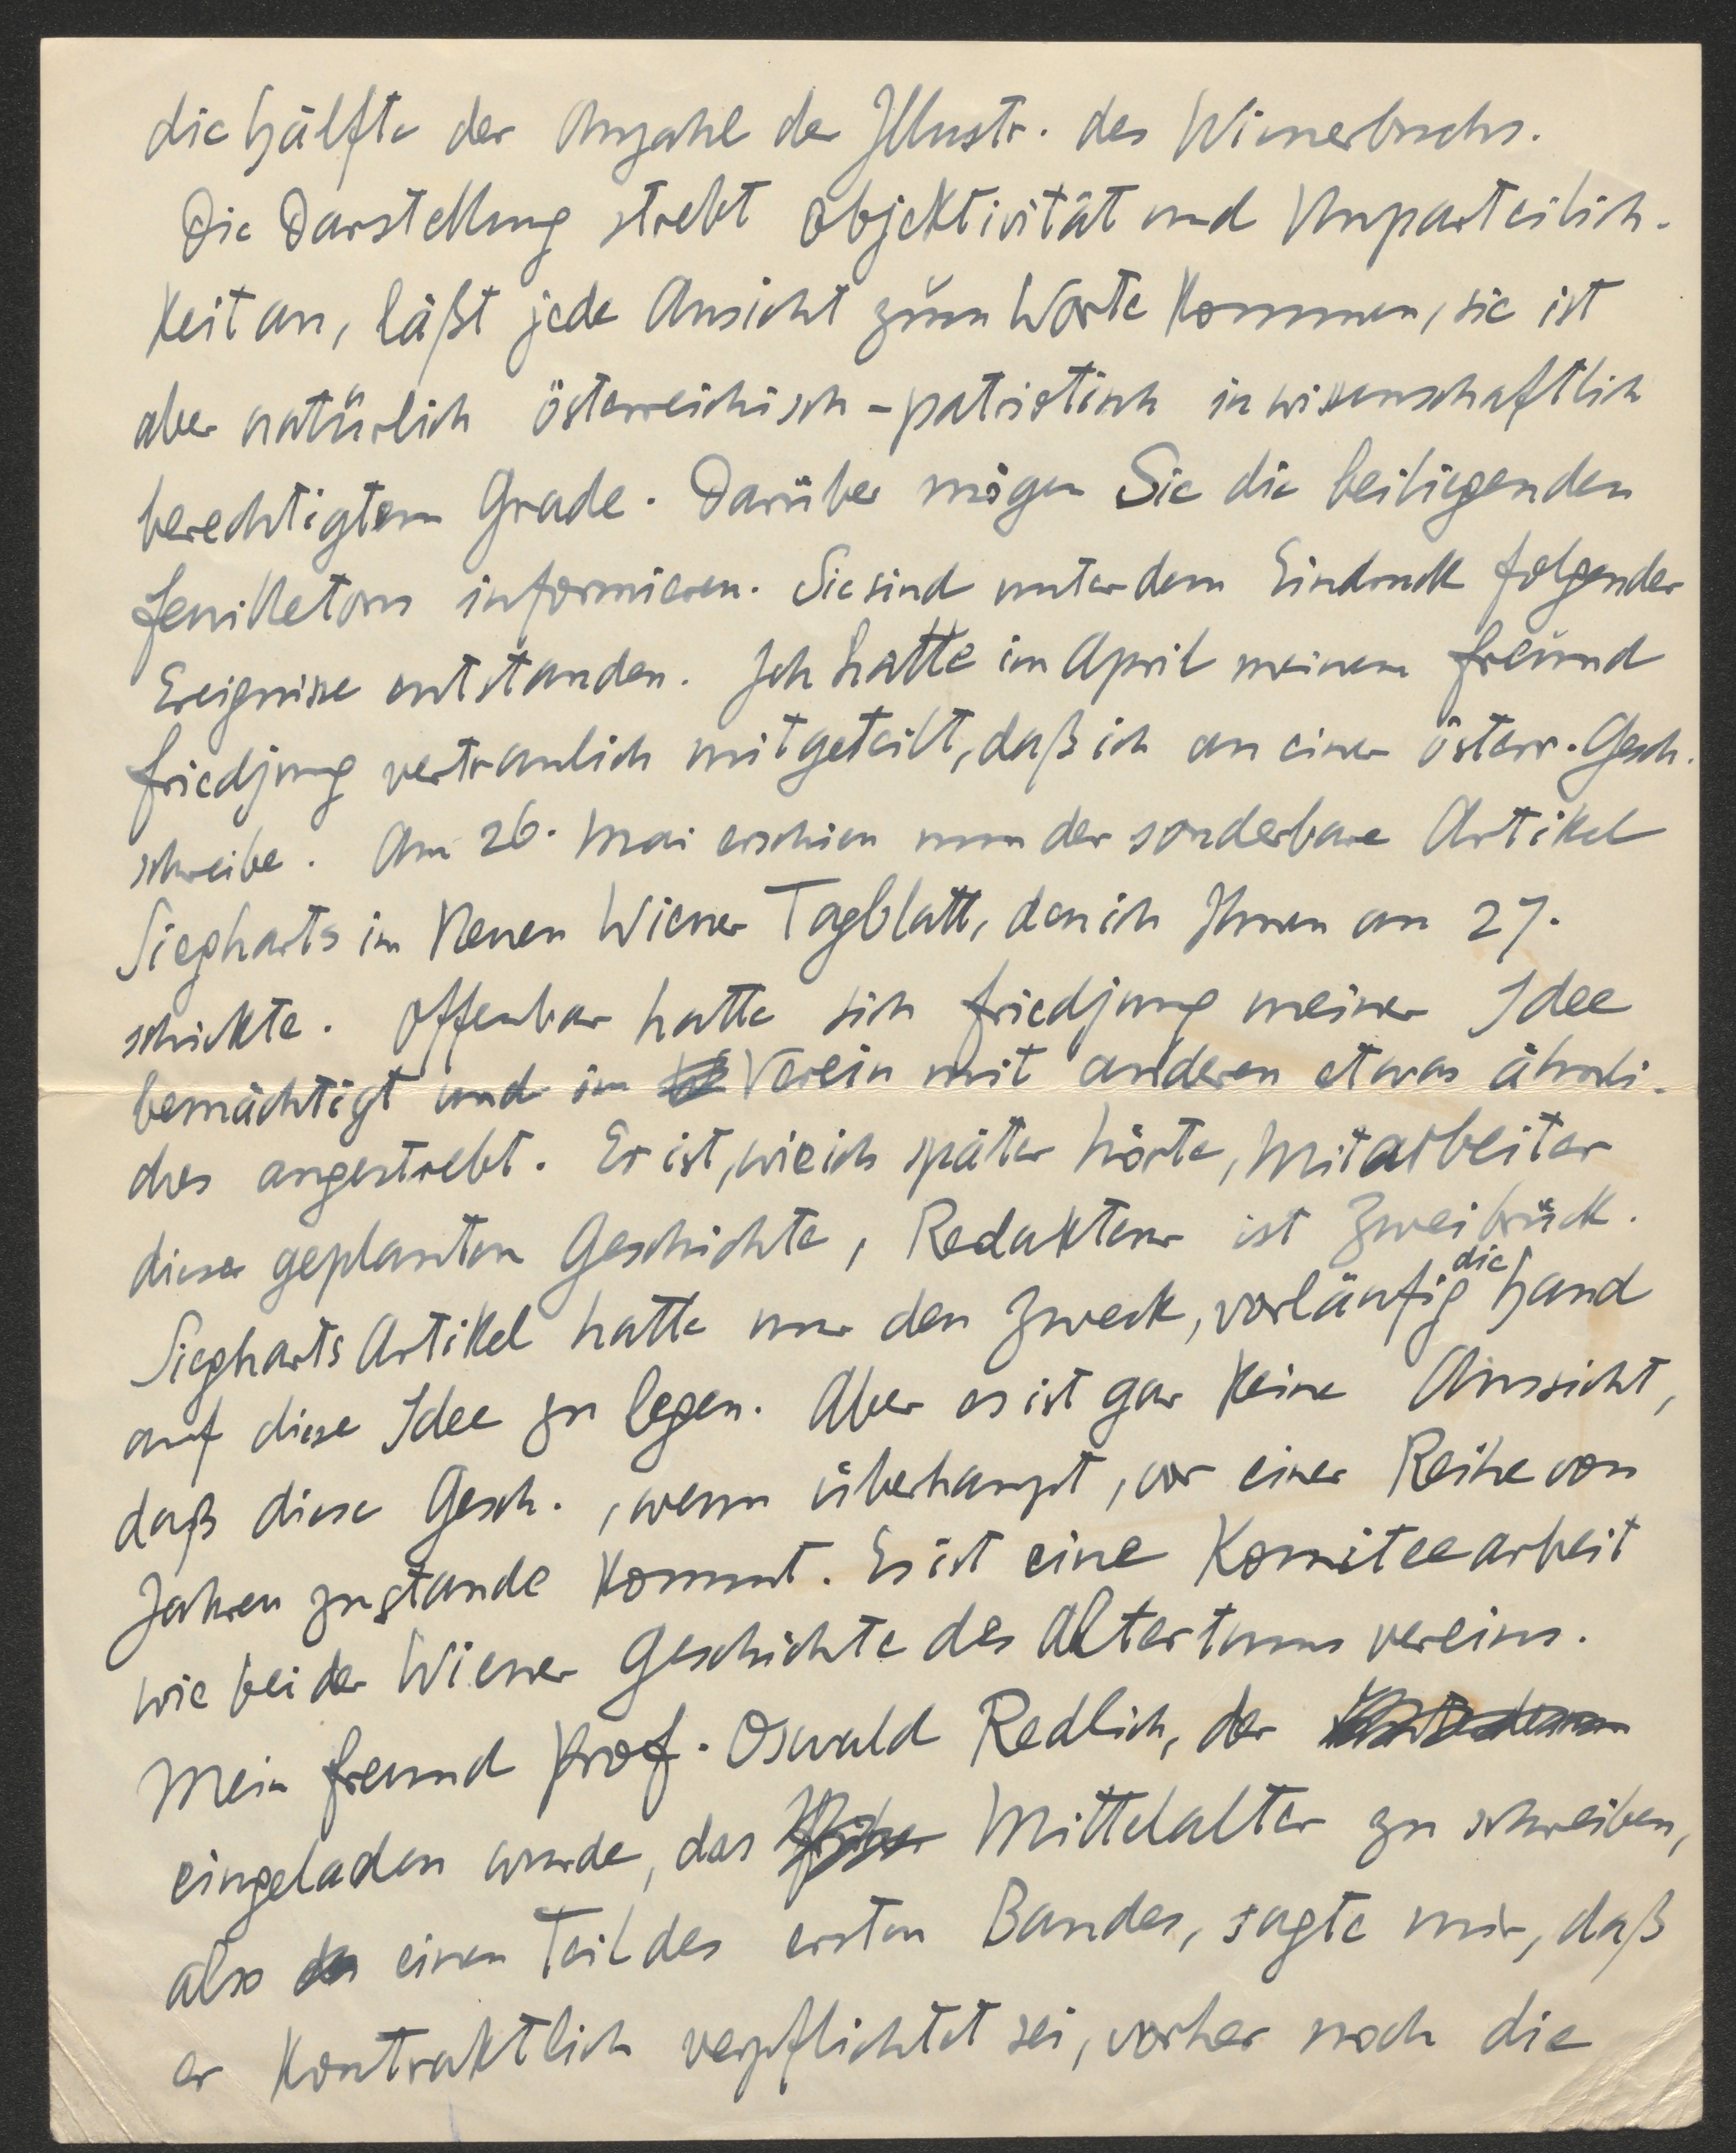 die Hälfte der Anzahl der Illustr. des Wienerbuchs.
Die Darstellung strebt Objektivität und Unparteilich-
keit an, läßt jede Ansicht zum Worte kommen, sie ist
aber natürlich österreichisch-patriotisch in wissenschaftlich
berechtigtem Grade. Darüber mögen Sie die beiliegenden
Feuilletons informieren. Sie sind unter dem Eindruck folgender
Ereignisse entstanden. Ich hatte im April meinem Freund
Friedjung vertraulich mitgeteilt, daß ich an einer österr. Gesch.
schreibe. Am 26. Mai erschien nun der sonderbare Artikel
Siegharts im Neuen Wiener Tagblatt, den ich Ihnen am 27.
schickte. Offenbar hatte sich Friedjung meiner Idee
bemächtigt und im Verein mit anderen etwas ähnli-
ches angestrebt. Er ist, wie ich später hörte, Mitarbeiter
dieser geplanten Geschichte, Redakteur ist Zweibrück.
Siegharts Artikel hatte nur den Zweck, vorläufig die Hand
auf diese Idee zu legen. Aber es ist gar keine Aussicht,
daß diese Gesch., wenn überhaupt, vor einer Reihe von
Jahren zustande kommt. Es ist eine Komiteearbeit
wie bei der Wiener Geschichte des Altertumsvereins.
Mein Freund Prof. Oswald Redlich, der
eingeladen wurde, das Mittelalter zu schreiben,
also einen Teil des ersten Bandes, sagte mir, daß
er kontraktlich verpflichtet sei, vorher noch die